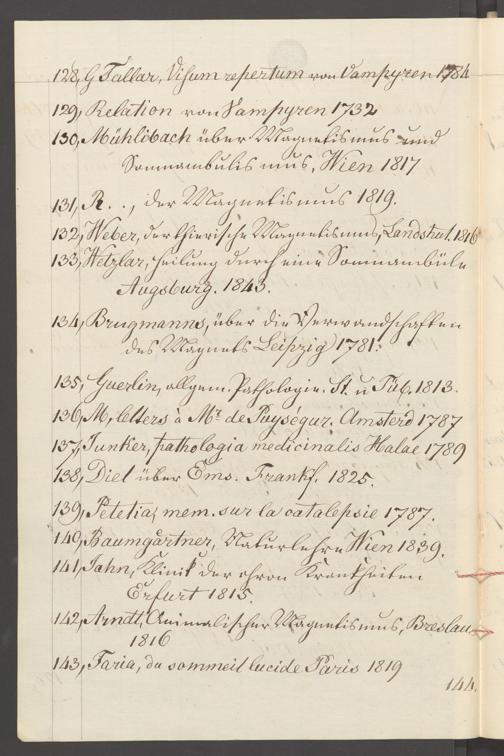 128, G Tallar, Visum repertum von Vampyren 1784
129, Relation von Vampyren 1732
130, Mühlibach über Magnetismus und
Somnambulismus, Wien 1817
131, R . . , der Magnetismus 1819.
132, Weber, der thierische Magnetismus, Landshut. 1816
133, Wetzlar, Heilung durch eine Somnambüle
Augsburg. 1843.
134, Brugmanns, über die Verwandschaften
des Magnets Leipzig 1781.
135, Guerlin, allgem. Pathologie. St. u Tüb. 1813.
136, M, letters à Mr. de Puységur. Amsterd 1787
137, Junker, pathologia medicinalis Halae 1789
138, Diel über Ems. Frankf. 1825.
139, Petetia, mem. sur la catalepsie 1787.
140, Baumgärtner, Naturlehre Wien 1839.
141, Jahn, Klinik der chron Krankheiten
Erfurt 1815.
142, Arndt, Animalischer Magnetismus, Breslau
1816
143, Faria, du sommeil lucide Paris 1819
144.